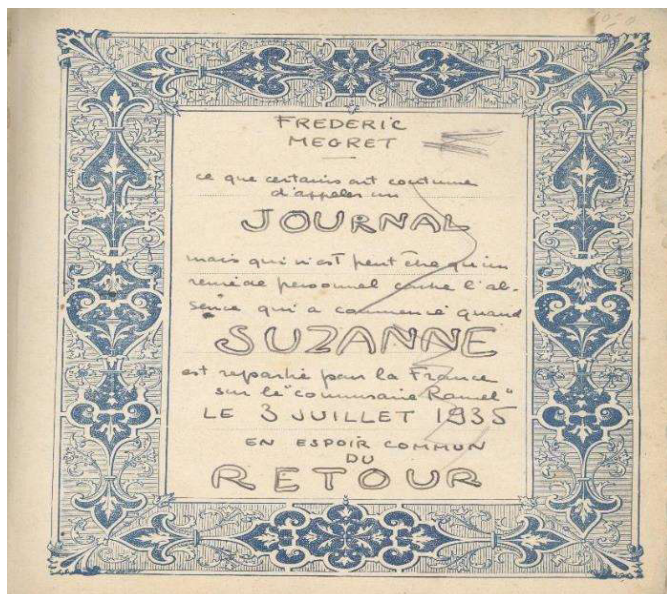 FREDERIC
MEGRET
ce que certains ont coutume
d'appeler un
JOURNAL
mais qui n'est peut être qu'un
remède personnel contre l'ab-
sence qui a commencé quand
SUZANNE
est repartie pour la France
sur le "commissaire Ramel"
LE 3 JUILLET 1935
EN ESPOIR COMMUN
DU
RETOUR